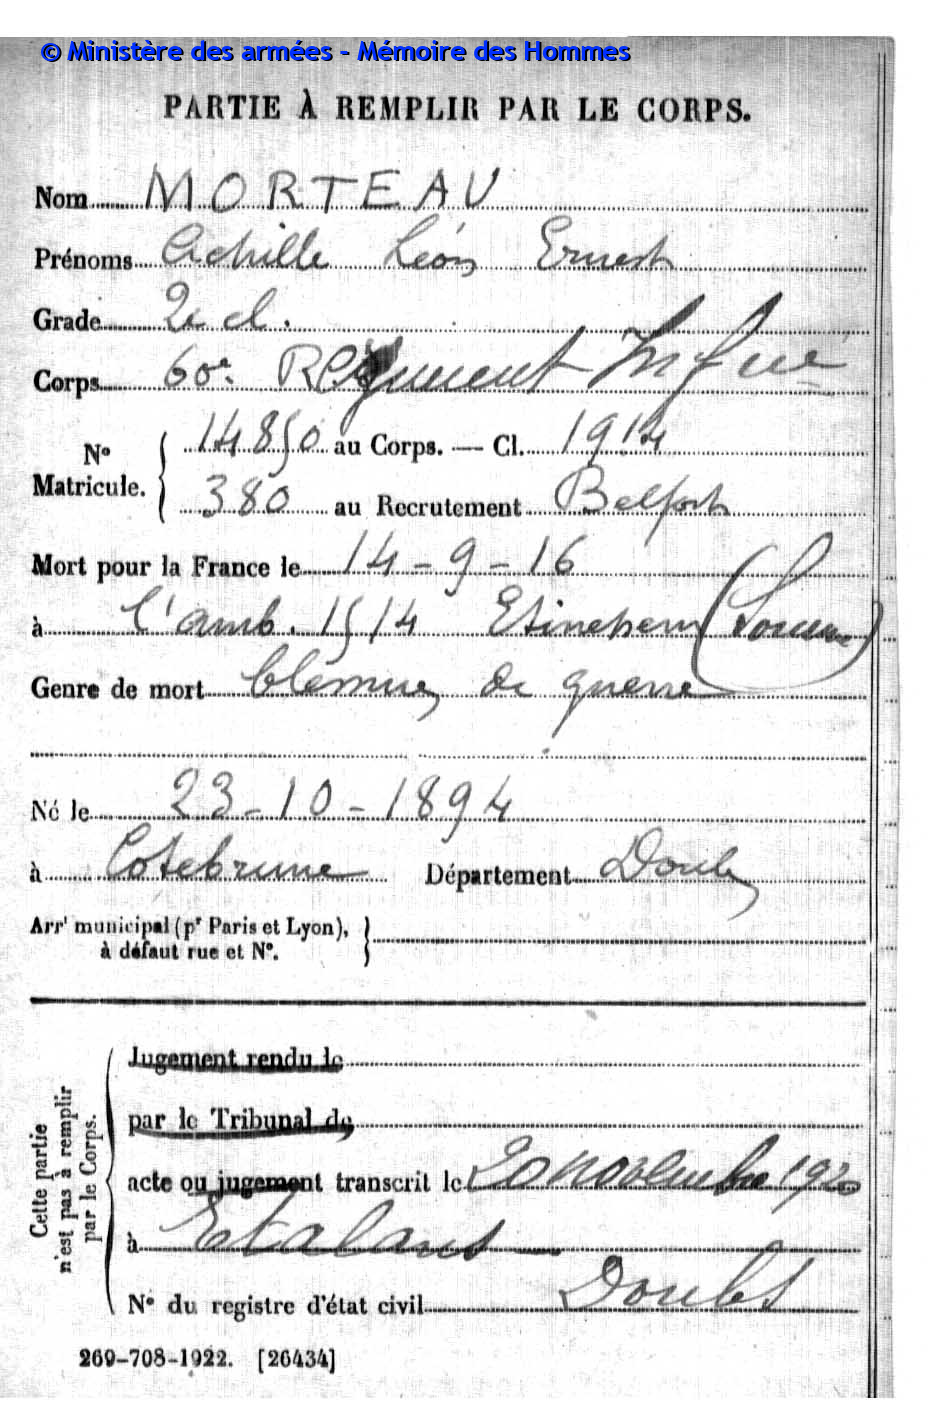 © Ministère des armées - Mémoire des Hommes
PARTIE À REMPLIR PAR LE CORPS.
Nom MORTEAU
Prénoms Achille Léon Ernest
Grade 2e cl.
Corps 60e Régiment Infrie
No Matricule. 14850 au Corps. — Cl. 1914
380 au Recrutement Belfort
Mort pour la France le 14-9-16
à l'amb. 15/14 Etinehem (Somme)
Genre de mort blessures de guerre
Né le 23-10-1894
à Cotebrune Département Doubs
Arrt municipal (pr Paris et Lyon),
à défaut rue et No.
Cette partie
n'est pas à remplir
par le Corps.
Jugement rendu le
par le Tribunal de
acte ou jugement transcrit le 20 novembre 1920
à Etalans
Doubs
No du registre d'état civil
269-708-1922. [26434]